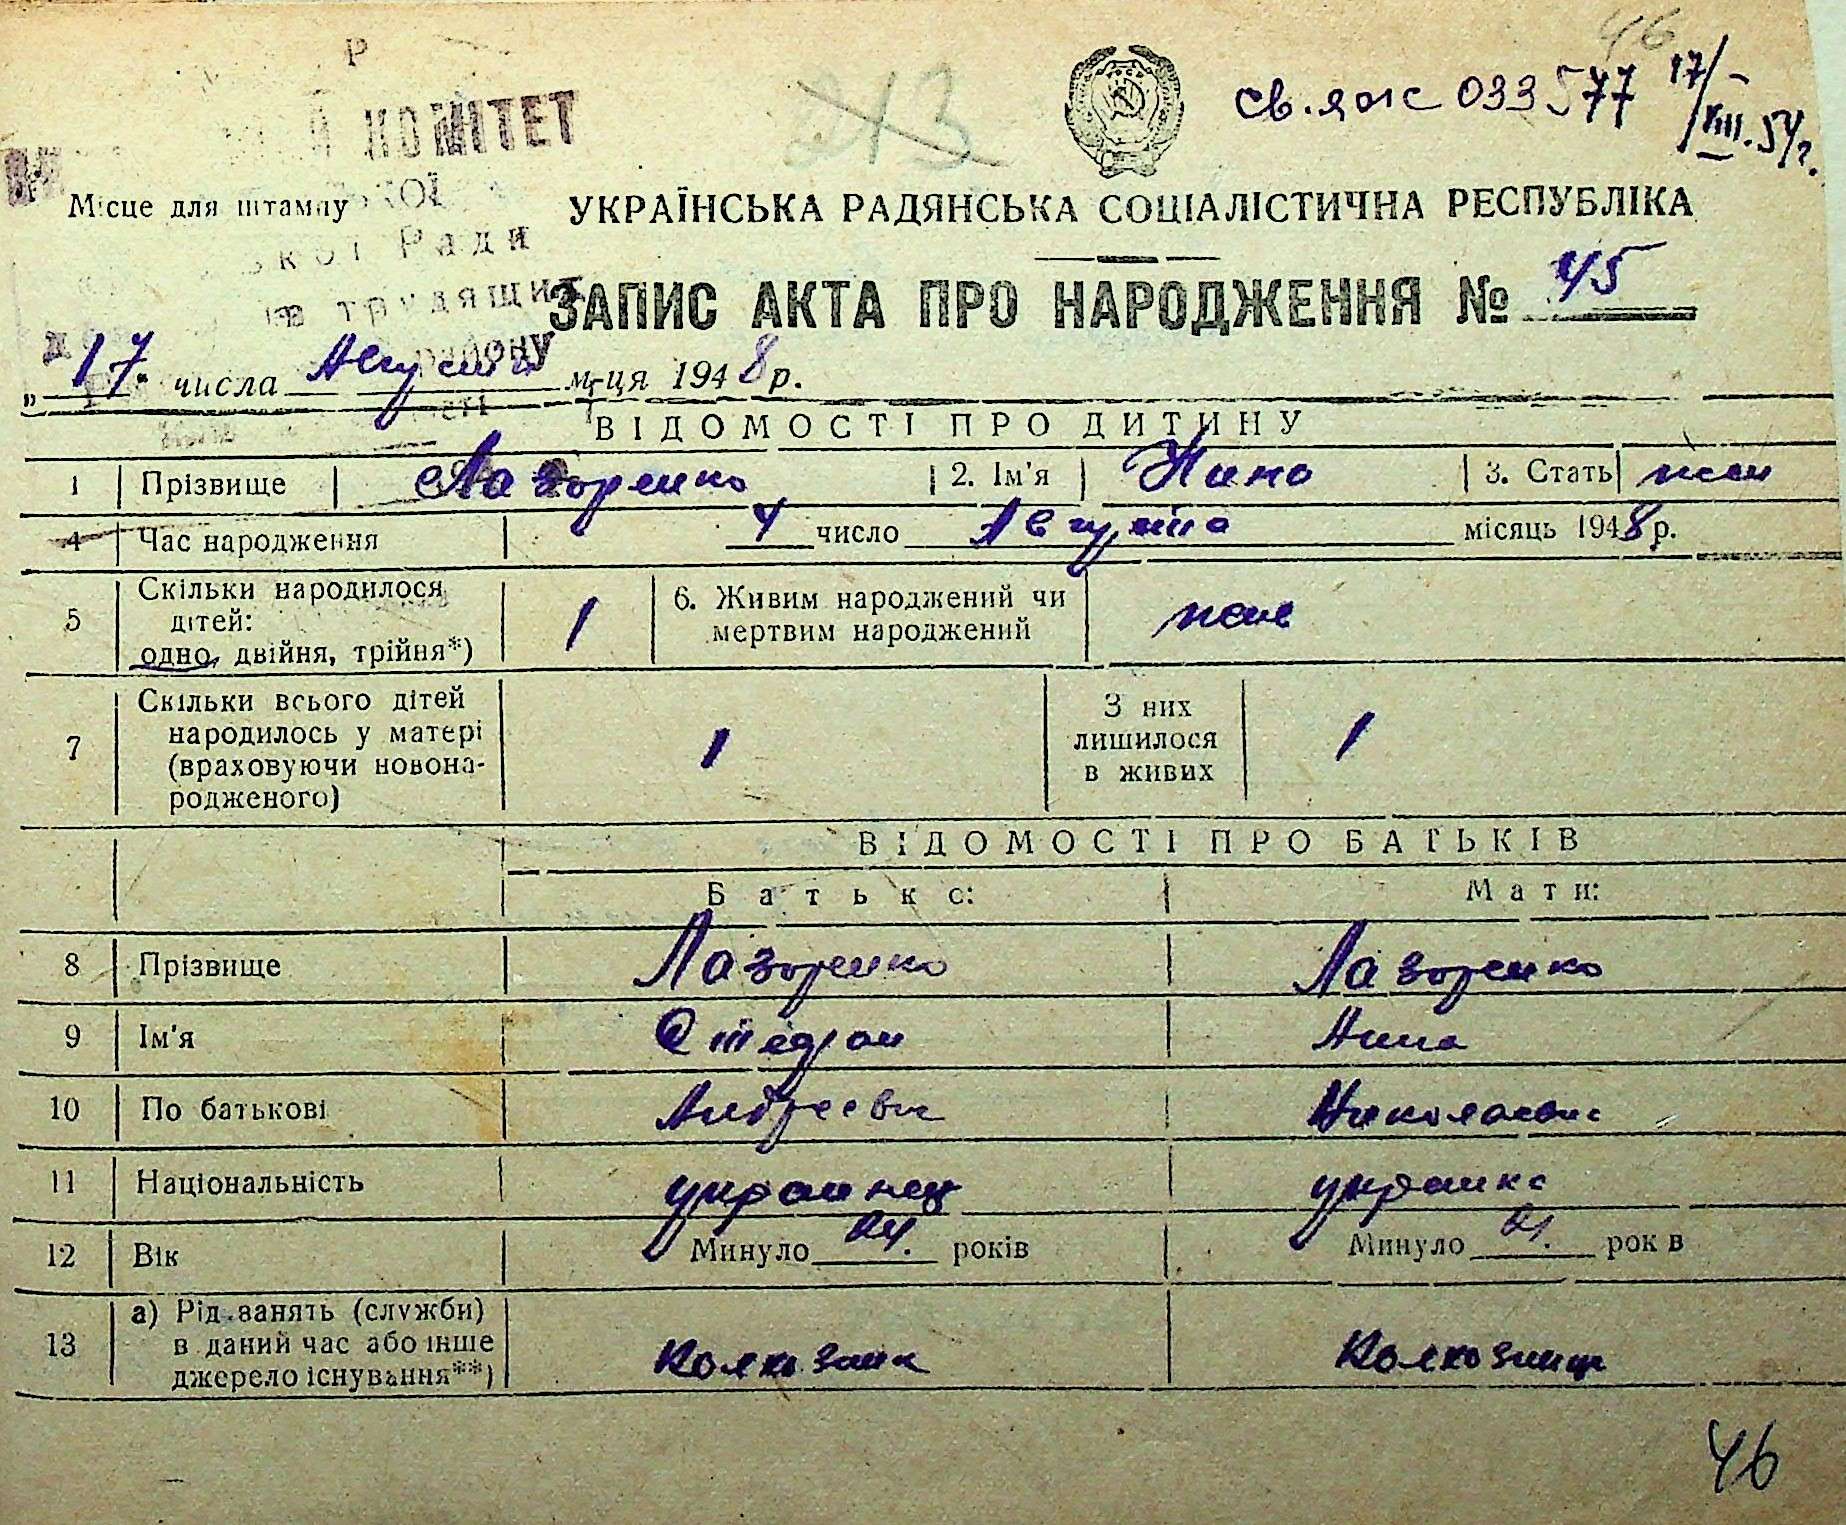 46
213
св. яж 033577 17/VIII.54г.
КОМІТЕТ
Місце для штампу
Ради
трудящих
району
УКРАЇНСЬКА РАДЯНСЬКА СОЦІАЛІСТИЧНА РЕСПУБЛІКА
ЗАПИС АКТА ПРО НАРОДЖЕННЯ № 45
„17" числа Августа м-ця 1948 р.
ВІДОМОСТІ ПРО ДИТИНУ
1 Прізвище Лазоренко 2. Ім'я Нина 3. Стать жен
4 Час народження 4 число Августа місяць 1948 р.
5 Скільки народилося
дітей:
одно, двійня, трійня*) 1 6. Живим народжений чи
мертвим народжений
7 Скільки всього дітей
народилось у матері
(враховуючи новона-
родженого) 1 З них
лишилося
в живих 1
ВІДОМОСТІ ПРО БАТЬКІВ
Батько: Мати:
8 Прізвище Лазоренко Лазоренко
9 Ім'я Стефан Анна
10 По батькові Андреевич Николаевна
11 Національність украинец украинка
12 Вік Минуло 24. років Минуло 21. років
13 а) Рід занять (служби)
в даний час або інше
джерело існування**) Колхозник Колхозница
46